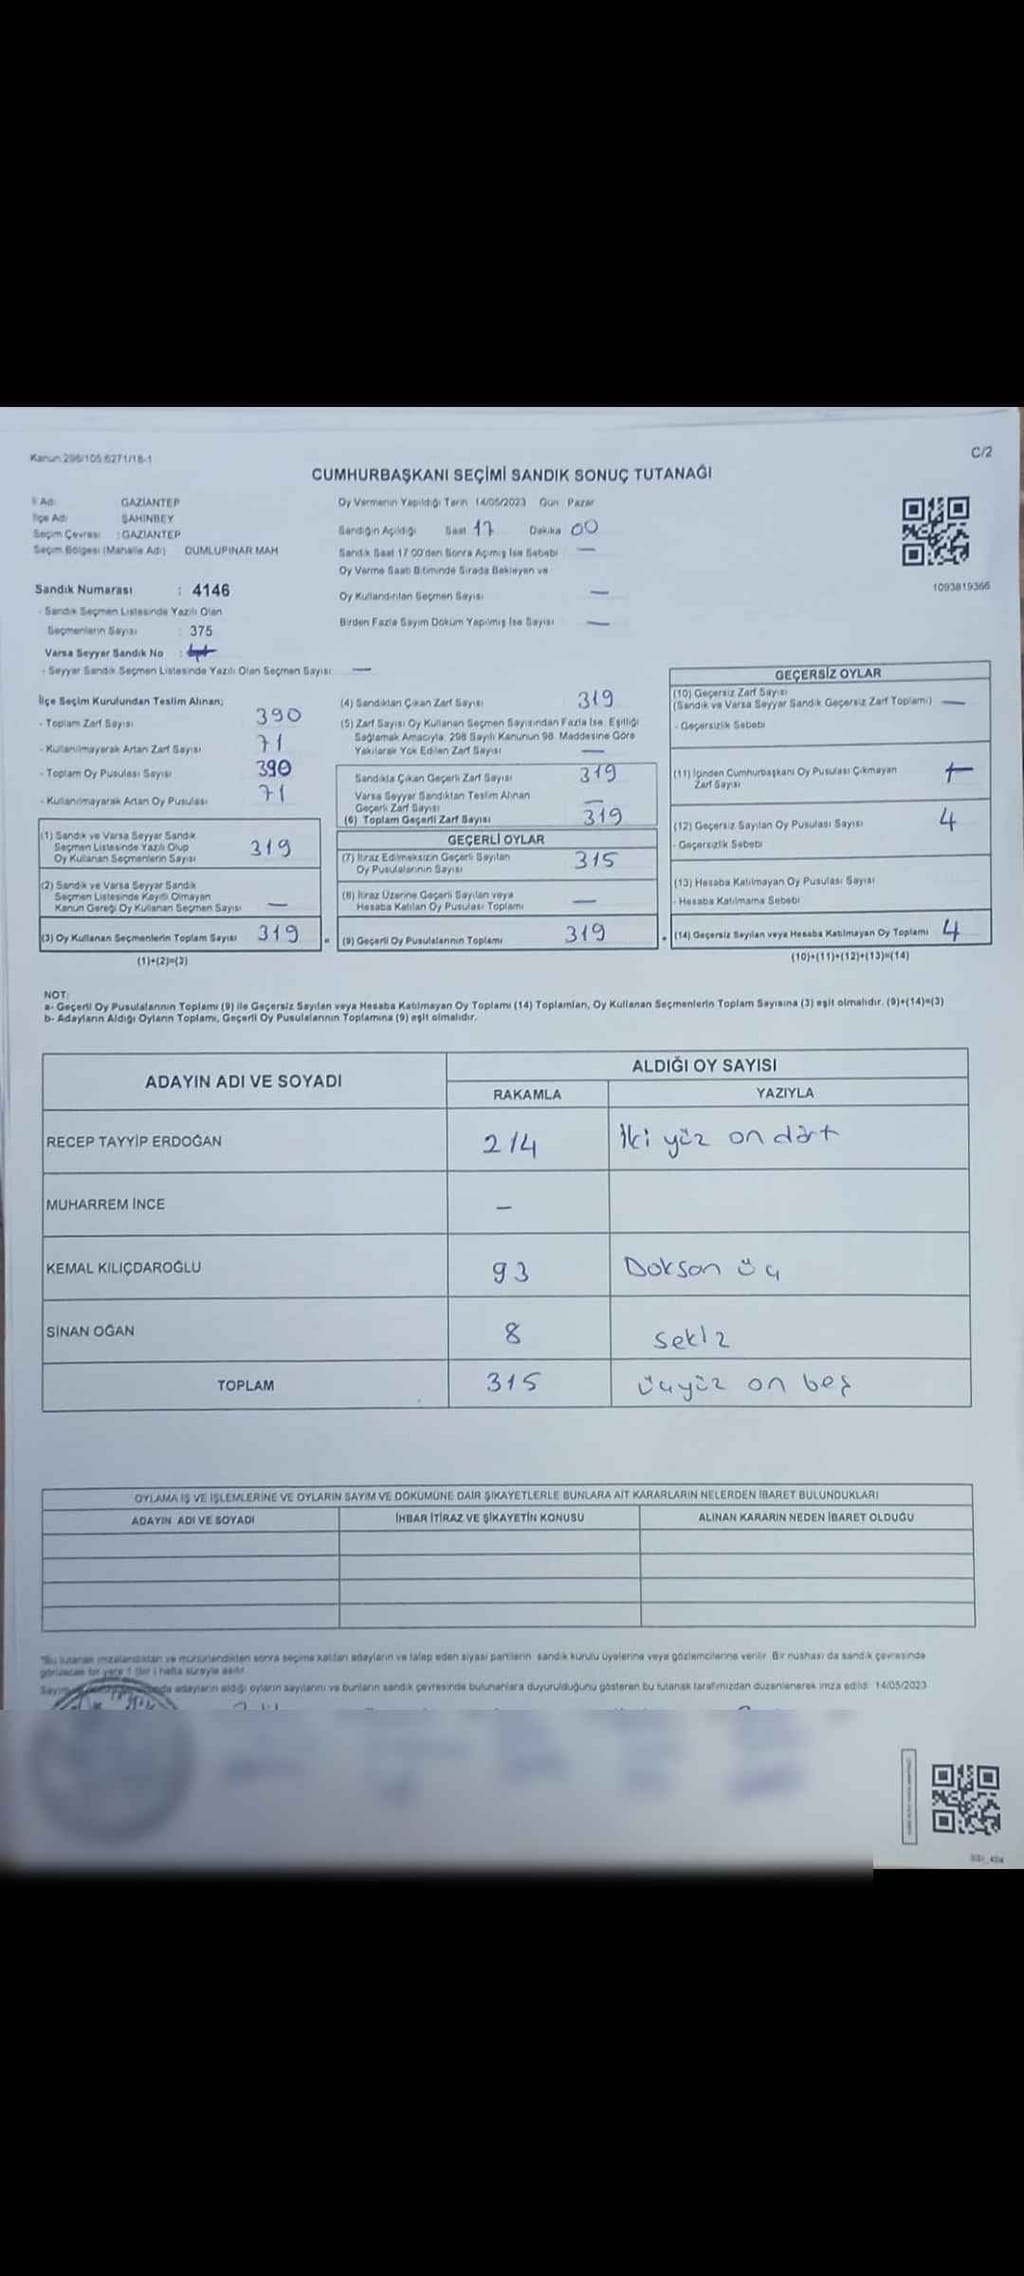 Kanun 298/105 6271/18-1
C/2
CUMHURBAŞKANI SEÇİMİ SANDIK SONUÇ TUTANAĞI
İl Adı GAZİANTEP
İlçe Adı ŞAHİNBEY
Seçim Çevresi : GAZİANTEP
Seçim Bölgesi (Mahalle Adı) DUMLUPINAR MAH
Oy Vermenin Yapıldığı Tarih 14/05/2023 Gün Pazar
Sandığın Açıldığı Saat 17 Dakika 00
Sandık Saat 17 00'den Sonra Açılmış İse Sebebi —
Oy Verme Saati Bitiminde Sırada Bekleyen ve
Oy Kullandırılan Seçmen Sayısı —
Birden Fazla Sayım Döküm Yapılmış İse Sayısı —
1093819366
Sandık Numarası : 4146
- Sandık Seçmen Listesinde Yazılı Olan
Seçmenlerin Sayısı : 375
Varsa Seyyar Sandık No :
- Seyyar Sandık Seçmen Listesinde Yazılı Olan Seçmen Sayısı —
İlçe Seçim Kurulundan Teslim Alınan;
- Toplam Zarf Sayısı 390
- Kullanılmayarak Artan Zarf Sayısı 71
- Toplam Oy Pusulası Sayısı 390
- Kullanılmayarak Artan Oy Pusulası 71
(1) Sandık ve Varsa Seyyar Sandık
Seçmen Listesinde Yazılı Olup
Oy Kullanan Seçmenlerin Sayısı 319
(2) Sandık ve Varsa Seyyar Sandık
Seçmen Listesinde Kayıtlı Olmayan
Kanun Gereği Oy Kullanan Seçmen Sayısı —
(3) Oy Kullanan Seçmenlerin Toplam Sayısı 319
(1)+(2)=(3)
(4) Sandıktan Çıkan Zarf Sayısı 319
(5) Zarf Sayısı Oy Kullanan Seçmen Sayısından Fazla İse, Eşitliği
Sağlamak Amacıyla, 298 Sayılı Kanunun 98. Maddesine Göre
Yakılarak Yok Edilen Zarf Sayısı —
Sandıkta Çıkan Geçerli Zarf Sayısı 319
Varsa Seyyar Sandıktan Teslim Alınan
Geçerli Zarf Sayısı —
(6) Toplam Geçerli Zarf Sayısı 319
GEÇERLİ OYLAR
(7) İtiraz Edilmeksizin Geçerli Sayılan
Oy Pusulalarının Sayısı 315
(8) İtiraz Üzerine Geçerli Sayılan veya
Hesaba Katılan Oy Pusulası Toplamı —
= (9) Geçerli Oy Pusulalarının Toplamı 319
GEÇERSİZ OYLAR
(10) Geçersiz Zarf Sayısı
(Sandık ve Varsa Seyyar Sandık Geçersiz Zarf Toplamı) —
- Geçersizlik Sebebi
(11) İçinden Cumhurbaşkanı Oy Pusulası Çıkmayan
Zarf Sayısı
(12) Geçersiz Sayılan Oy Pusulası Sayısı 4
- Geçersizlik Sebebi
(13) Hesaba Katılmayan Oy Pusulası Sayısı
- Hesaba Katılmama Sebebi
+ (14) Geçersiz Sayılan veya Hesaba Katılmayan Oy Toplamı 4
(10)+(11)+(12)+(13)=(14)
NOT:
a- Geçerli Oy Pusulalarının Toplamı (9) ile Geçersiz Sayılan veya Hesaba Katılmayan Oy Toplamı (14) Toplamları, Oy Kullanan Seçmenlerin Toplam Sayısına (3) eşit olmalıdır. (9)+(14)=(3)
b- Adayların Aldığı Oyların Toplamı, Geçerli Oy Pusulalarının Toplamına (9) eşit olmalıdır.
ADAYIN ADI VE SOYADI ALDIĞI OY SAYISI
RAKAMLA YAZIYLA
RECEP TAYYİP ERDOĞAN 214 İki yüz on dört
MUHARREM İNCE —
KEMAL KILIÇDAROĞLU 93 Doksan üç
SİNAN OĞAN 8 sekiz
TOPLAM 315 üçyüz on beş
OYLAMA İŞ VE İŞLEMLERİNE VE OYLARIN SAYIM VE DÖKÜMÜNE DAİR ŞİKAYETLERLE BUNLARA AİT KARARLARIN NELERDEN İBARET BULUNDUKLARI
ADAYIN ADI VE SOYADI İHBAR İTİRAZ VE ŞİKAYETİN KONUSU ALINAN KARARIN NEDEN İBARET OLDUĞU
*Bu tutanak imzalandıktan ve mühürlendikten sonra seçime katılan adayların ve talep eden siyasi partilerin sandık kurulu üyelerine veya gözlemcilerine verilir. Bir nüshası da sandık çevresinde
görülecek bir yere 1 (bir) hafta süreyle asılır.
adayların aldığı oyların sayılarını ve bunların sandık çevresinde bulunanlara duyurulduğunu gösteren bu tutanak tarafımızdan düzenlenerek imza edildi. 14/05/2023